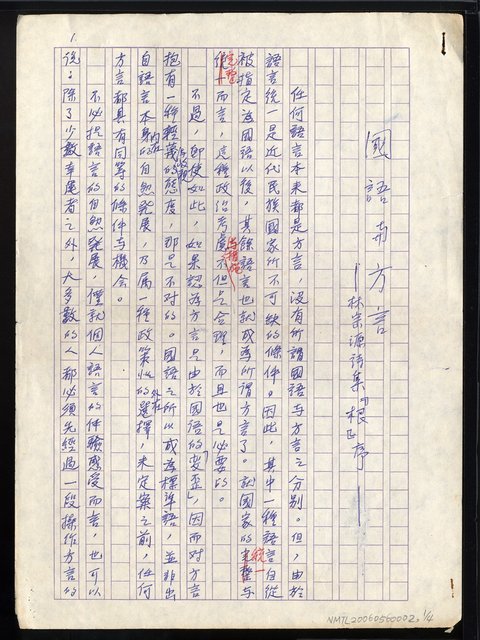 1.
國語與方言
——林宗源詩集『根』序——
任何語言本來都是方言，沒有所謂國語與方言之分別。但，由於
語言統一是近代民族國家所不可缺的條件。因此，其中一種語言自從
被指定為國語以後，其餘語言也就成為所謂方言了。就國家的統一與
完整而言，這種政治考慮與措施不但是合理，而且也是必要的。
不過，即使如此，如果認為方言是由於國語的「變歪」，因而對方言
抱有一種輕蔑的態度，那是不對的。國語之所以成為標準語，並非出
自語言本身的內在的自然發展，乃屬一種政策性的外在選擇，未定案之前，任何
方言都具有同等的條件与機会。
不必提語言的自然發展，僅就個人語言的体驗感受而言，也可以
後：除了少數幸運者之外，大多數的人都必須先經過一段操作方言的
NMTL20060560002, 1/4